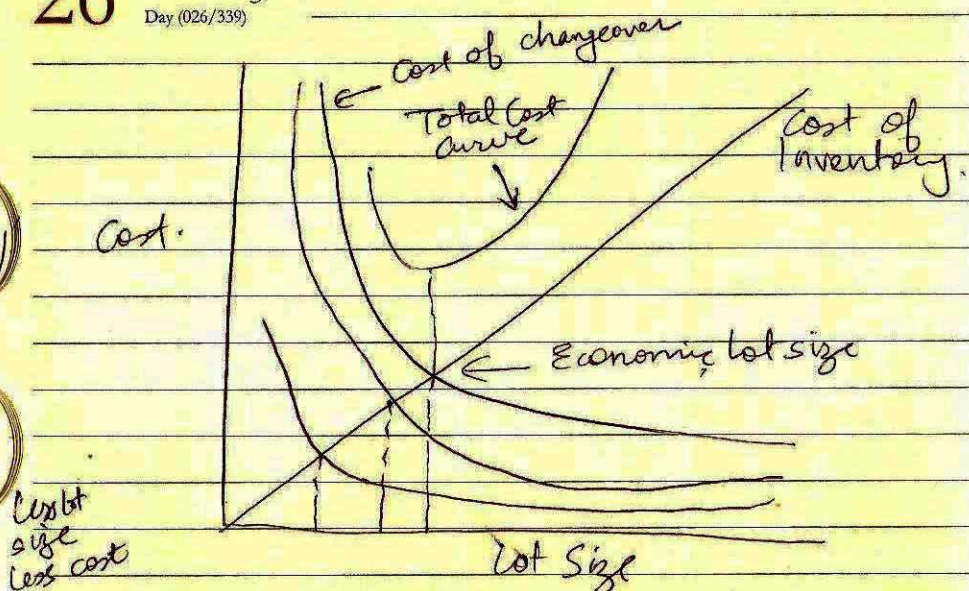 26
Day (026/339)
Cost of changeover
Total Cost
curve
Cost of
Inventory.
Cost.
Economic lot size
Less lot
size
less cost
Lot Size